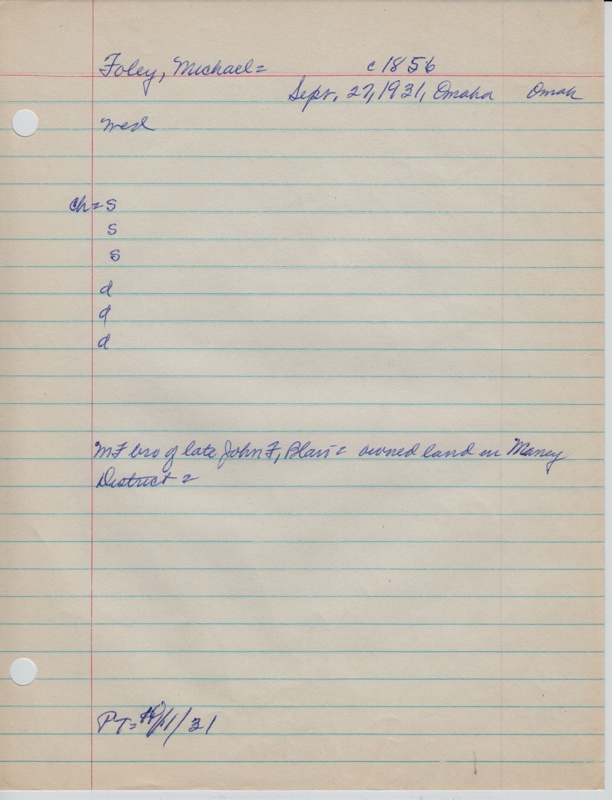 Foley, Michael = c1856
Sept. 27, 1931, Omaha Omah
med
ch = s
s
s
d
d
d
MF bro of late John F, Blair = owned land in Maney
District =
PT = /1/31